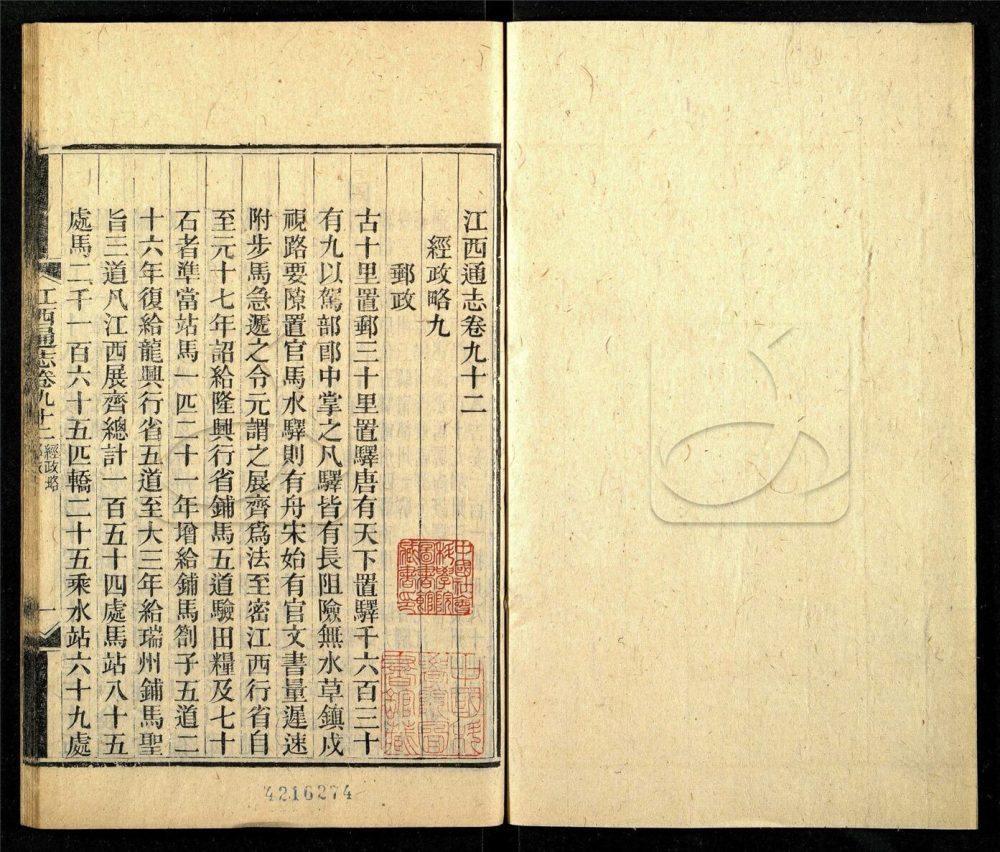 江西通志卷九十二
經政略九
郵政
古十里置郵三十里置驛唐有天下置驛千六百三十
有九以駕部郎中掌之凡驛皆有長阻險無水草鎮戍
視路要隙置官馬水驛則有舟宋始有官文書量遲速
附步馬急遞之令元謂之展齊爲法至密江西行省自
至元十七年詔給隆興行省鋪馬五道驗田糧及七十
石者準當站馬一匹二十一年增給鋪馬劄子五道二
十六年復給龍興行省五道至大三年給瑞州鋪馬聖
旨三道凡江西展齊總計一百五十四處馬站八十五
處馬二千一百六十五匹轎二十五乘水站六十九處
江西通志卷九十二
經政略
一
中國社會
科學院
圖書館
藏書印
4216274